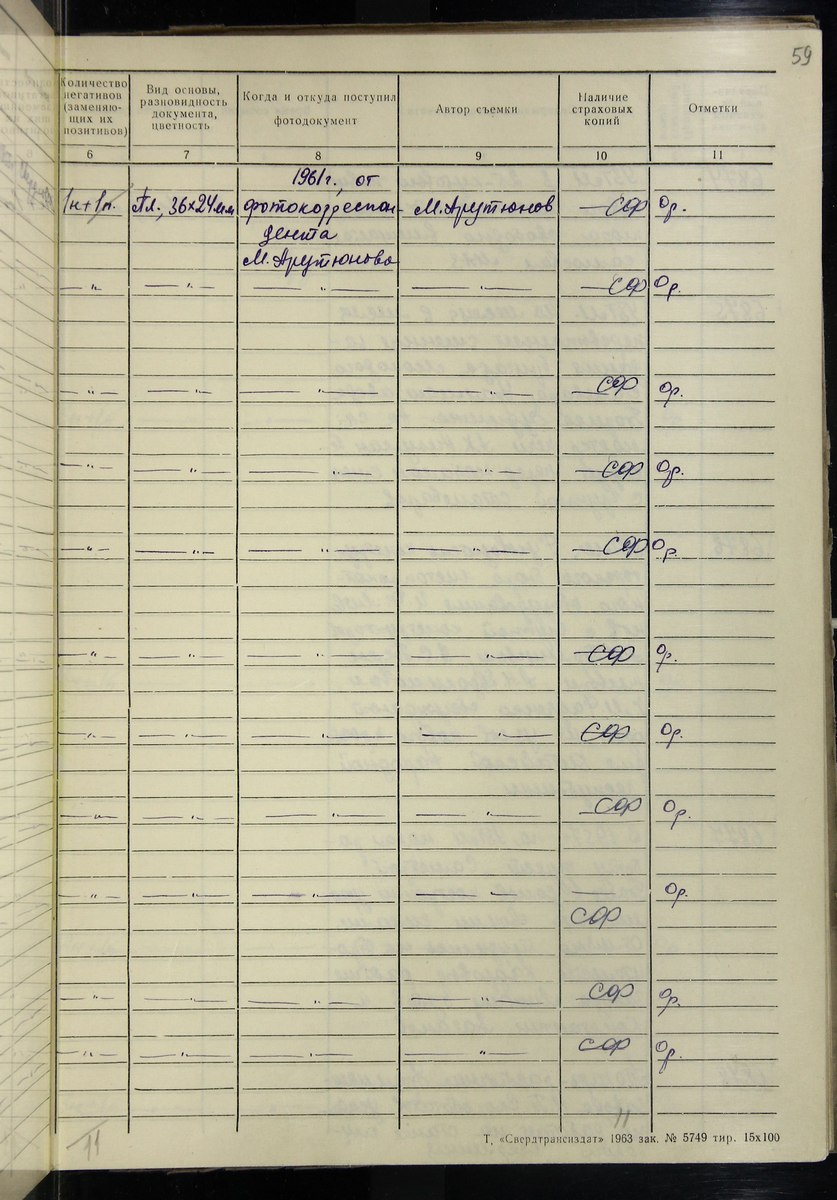 59
Количество негативов (заменяю- щих их позитивов)
Вид основы, разновидность документа, цветность
Когда и откуда поступил фотодокумент
Автор съемки
Наличие страховых копий
Отметки
6 7 8 9 10 11
1961г., от
1н+1п. Пл., 36х24мм фотокорреспон- М.Арутюнов — СФ Ор.
дента
М. Арутюнова
—"— —"— —"— —"— — СФ Ор.
—"— —"— —"— —"— — СФ Ор.
—"— —"— —"— —"— — СФ Ор.
—"— —"— —"— —"— — СФ Ор.
—"— —"— —"— —"— — СФ Ор.
—"— —"— —"— —"— СФ Ор.
—"— —"— —"— —"— СФ Ор.
—"— —"— —"— —"— — Ор.
СФ
—"— —"— —"— —"— СФ Ор.
—"— —"— —"— —"— СФ Ор.
11
11
Т. «Свердтрансиздат» 1963 зак. № 5749 тир. 15х100